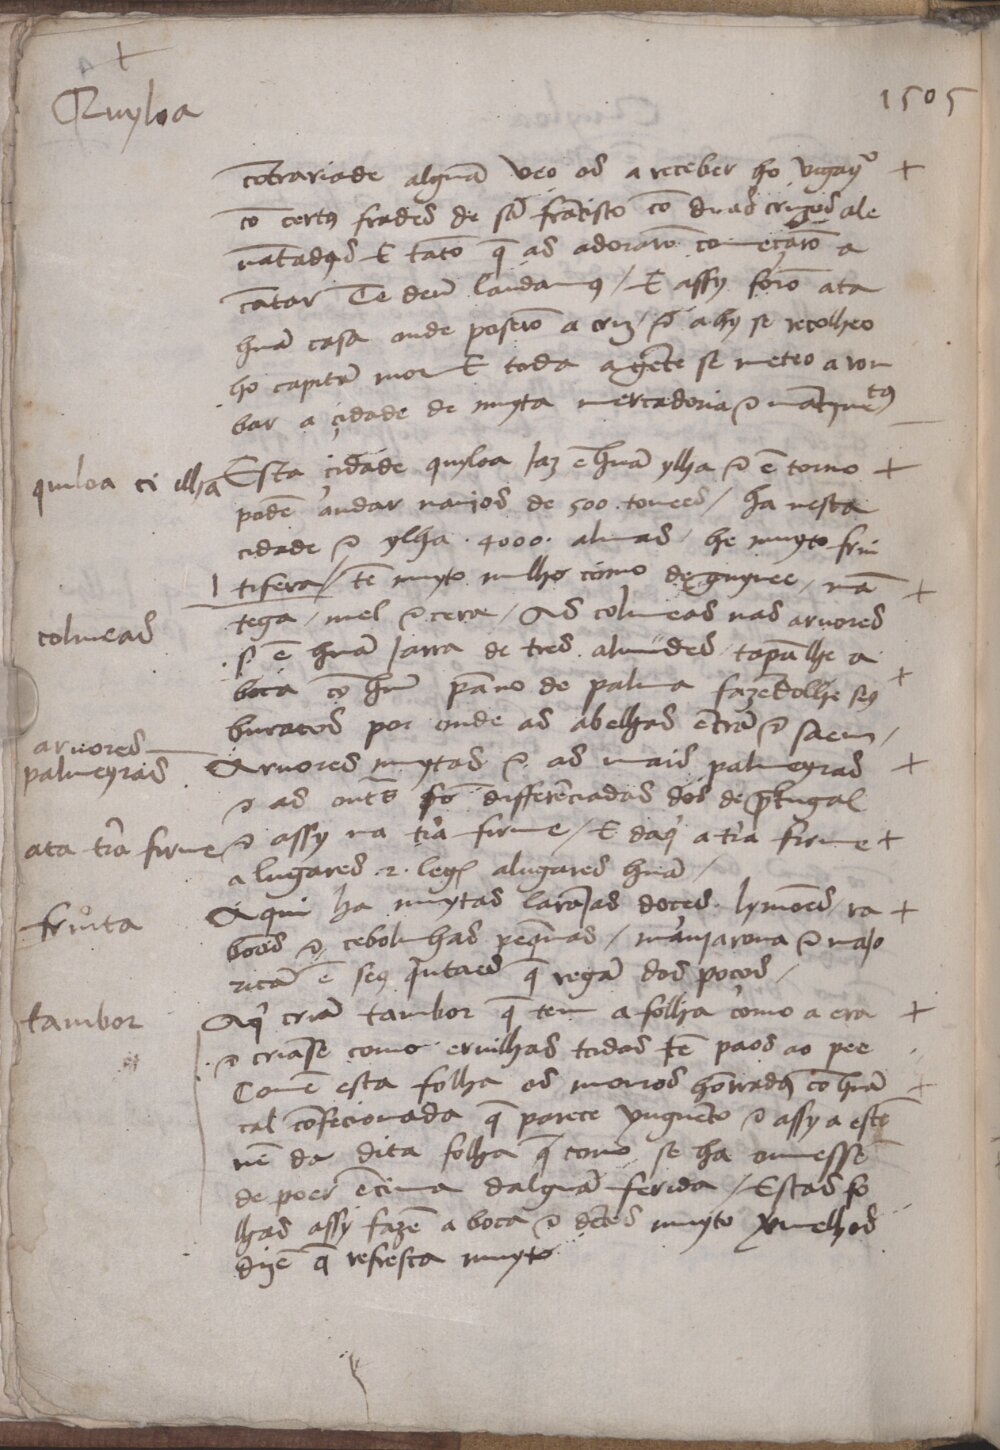 Quyloa
1505
cõtrariade algũa veo os a receber ho vigayrº
cõ certos frades de sã frãcisco cõ duas cruzes ale
vãtadas E tãto q̃ as adorarõ começarõ a
cãtar Te deũ laudamus / E assy forõ ata
hũa casa onde poserõ a cruz / & ahy se recolheo
ho capitã mor E toda a gẽte se meteo a rou
bar a çidade de muyta mercadoria & mãtimẽtos
quiloa ci ilha
Esta çidade quyloa jaz ẽ hũa ylha & ẽ torno
podẽ andar navios de 500 tonees / ha nesta
cidade & ylha . 4000 . almas / he muyto fru
tifera / tẽ muyto milho como de guynee, mã
tega / mel & cera / As colmeas nas arvores
colmeas
sõ ẽ hũa jarra de tres almudes tapãlhe a
boca cõ hũ pano de palma fazẽdolhe seus
buracos por onde as abelhas ẽtrã & saem /
arvores
palmeyras
Arvores muytas & as mais palmeyras
& as outªs sõ differẽciadas das de portugal
ata trã firme
& assy na trã firme / E daq̃ a trã firme
a lugares . 2 . legoas a lugares hũa /
fruita
Aqui ha muytas larãjas doces . lymoẽs / ra
bãos & cebolinhas peq̃nas / mãnjarona & majo
ricã ẽ seus quĩtaes q̃ regã dos poços /
tambor
Aq̃ criã tambor q̃ tem a folha como a era
& criãse como ervilhas todas tẽ paos ao pee
Comẽ esta folha os mouros hõrrados cõ hũa
cal cõfecionada q̃ parece ungueẽto & assy a estẽ
nẽ da dita folha q̃ como se ha ouvessẽ
de poer ẽcima dalgũa ferida / Estas fo
lhas assy fazẽ a boca & dẽtes muyto vermelhos
dizẽ q̃ refresca muyto